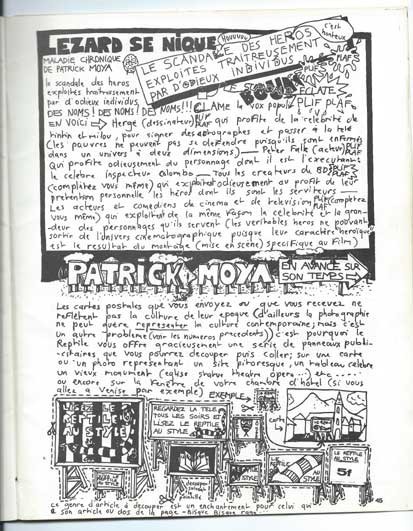 LEZARD SE NIQUE
MALADIE CHRONIQUE
DE PATRICK MOYA
LE SCANDALE DES HEROS
EXPLOITES TRAITREUSEMENT
PAR D'ODIEUX INDIVIDUS
HOUUUUU
C'est honteux
le scandale des heros
exploités traitreusement
par d'odieux individus,
DES NOMS! DES NOMS! DES NOMS!!! CLAME la vox populi
ECLATE
PLIF PLAF
EN VOICI Hergé (dessinateur) PLIF PLAF qui profite de la celebrité de
tintin et milou, pour signer des autographes et passer à la télé
(les pauvres ne peuvent pas se defendre puisqu'ils sont enfermés
dans un univers à deux dimensions) Peter Falke (acteur) PLIF PLAF
Qui profite odieusement du personnage dont il est l'executant
le celebre inspecteur Colombo Tous les createurs de BD PLIF PLAF
(completez vous même) qui exploitent odieusement au profit de leur
pretention personnelle les héros dont ils sont les serviteurs
Les acteurs et comediens de cinema et de television PLIF PLAF (completez
vous même) qui exploitent de la même façon la celebrité et la gran-
deur des personnages qu'ils servent (les veritables heros ne pouvant
sortir de l'univers cinematographique puisque leur caractère heroique
est le resultat du montage (mise en scène) specifique au film)
PATRICK MOYA
EN AVANCE SUR
SON TEMPS
Les cartes postales que vous envoyez ou que vous recevez ne
refletent pas la culture de leur epoque (d'ailleurs la photographie
ne peut guère representer la culture contemporaine; mais c'est
un autre problème (voir les numeros precedents)) c'est pourquoi le
Reptile vous offre gracieusement une serie de panneaux publi-
-citaires que vous pourrez decouper puis coller; sur une carte
ou un photo representant un site pitoresque, un tableau célèbre
un vieux monument (eglise statue theatre opera...) etc....
ou encore sur la fenêtre de votre chambre d'hôtel (si vous
allez a Venise par exemple)
EXEMPLE
LE REPTILE AU STYLE
REGARDEZ LA TELE
TOUS LES SOIRS ET
LISEZ LE REPTILE
AU STYLE
carte
AU STYLE
LE REPTILE
AU STYLE
51
45
ce genre d'article à decouper est un enchantement pour celui qui
a son article au dos de la page - Bisque Bisque rage